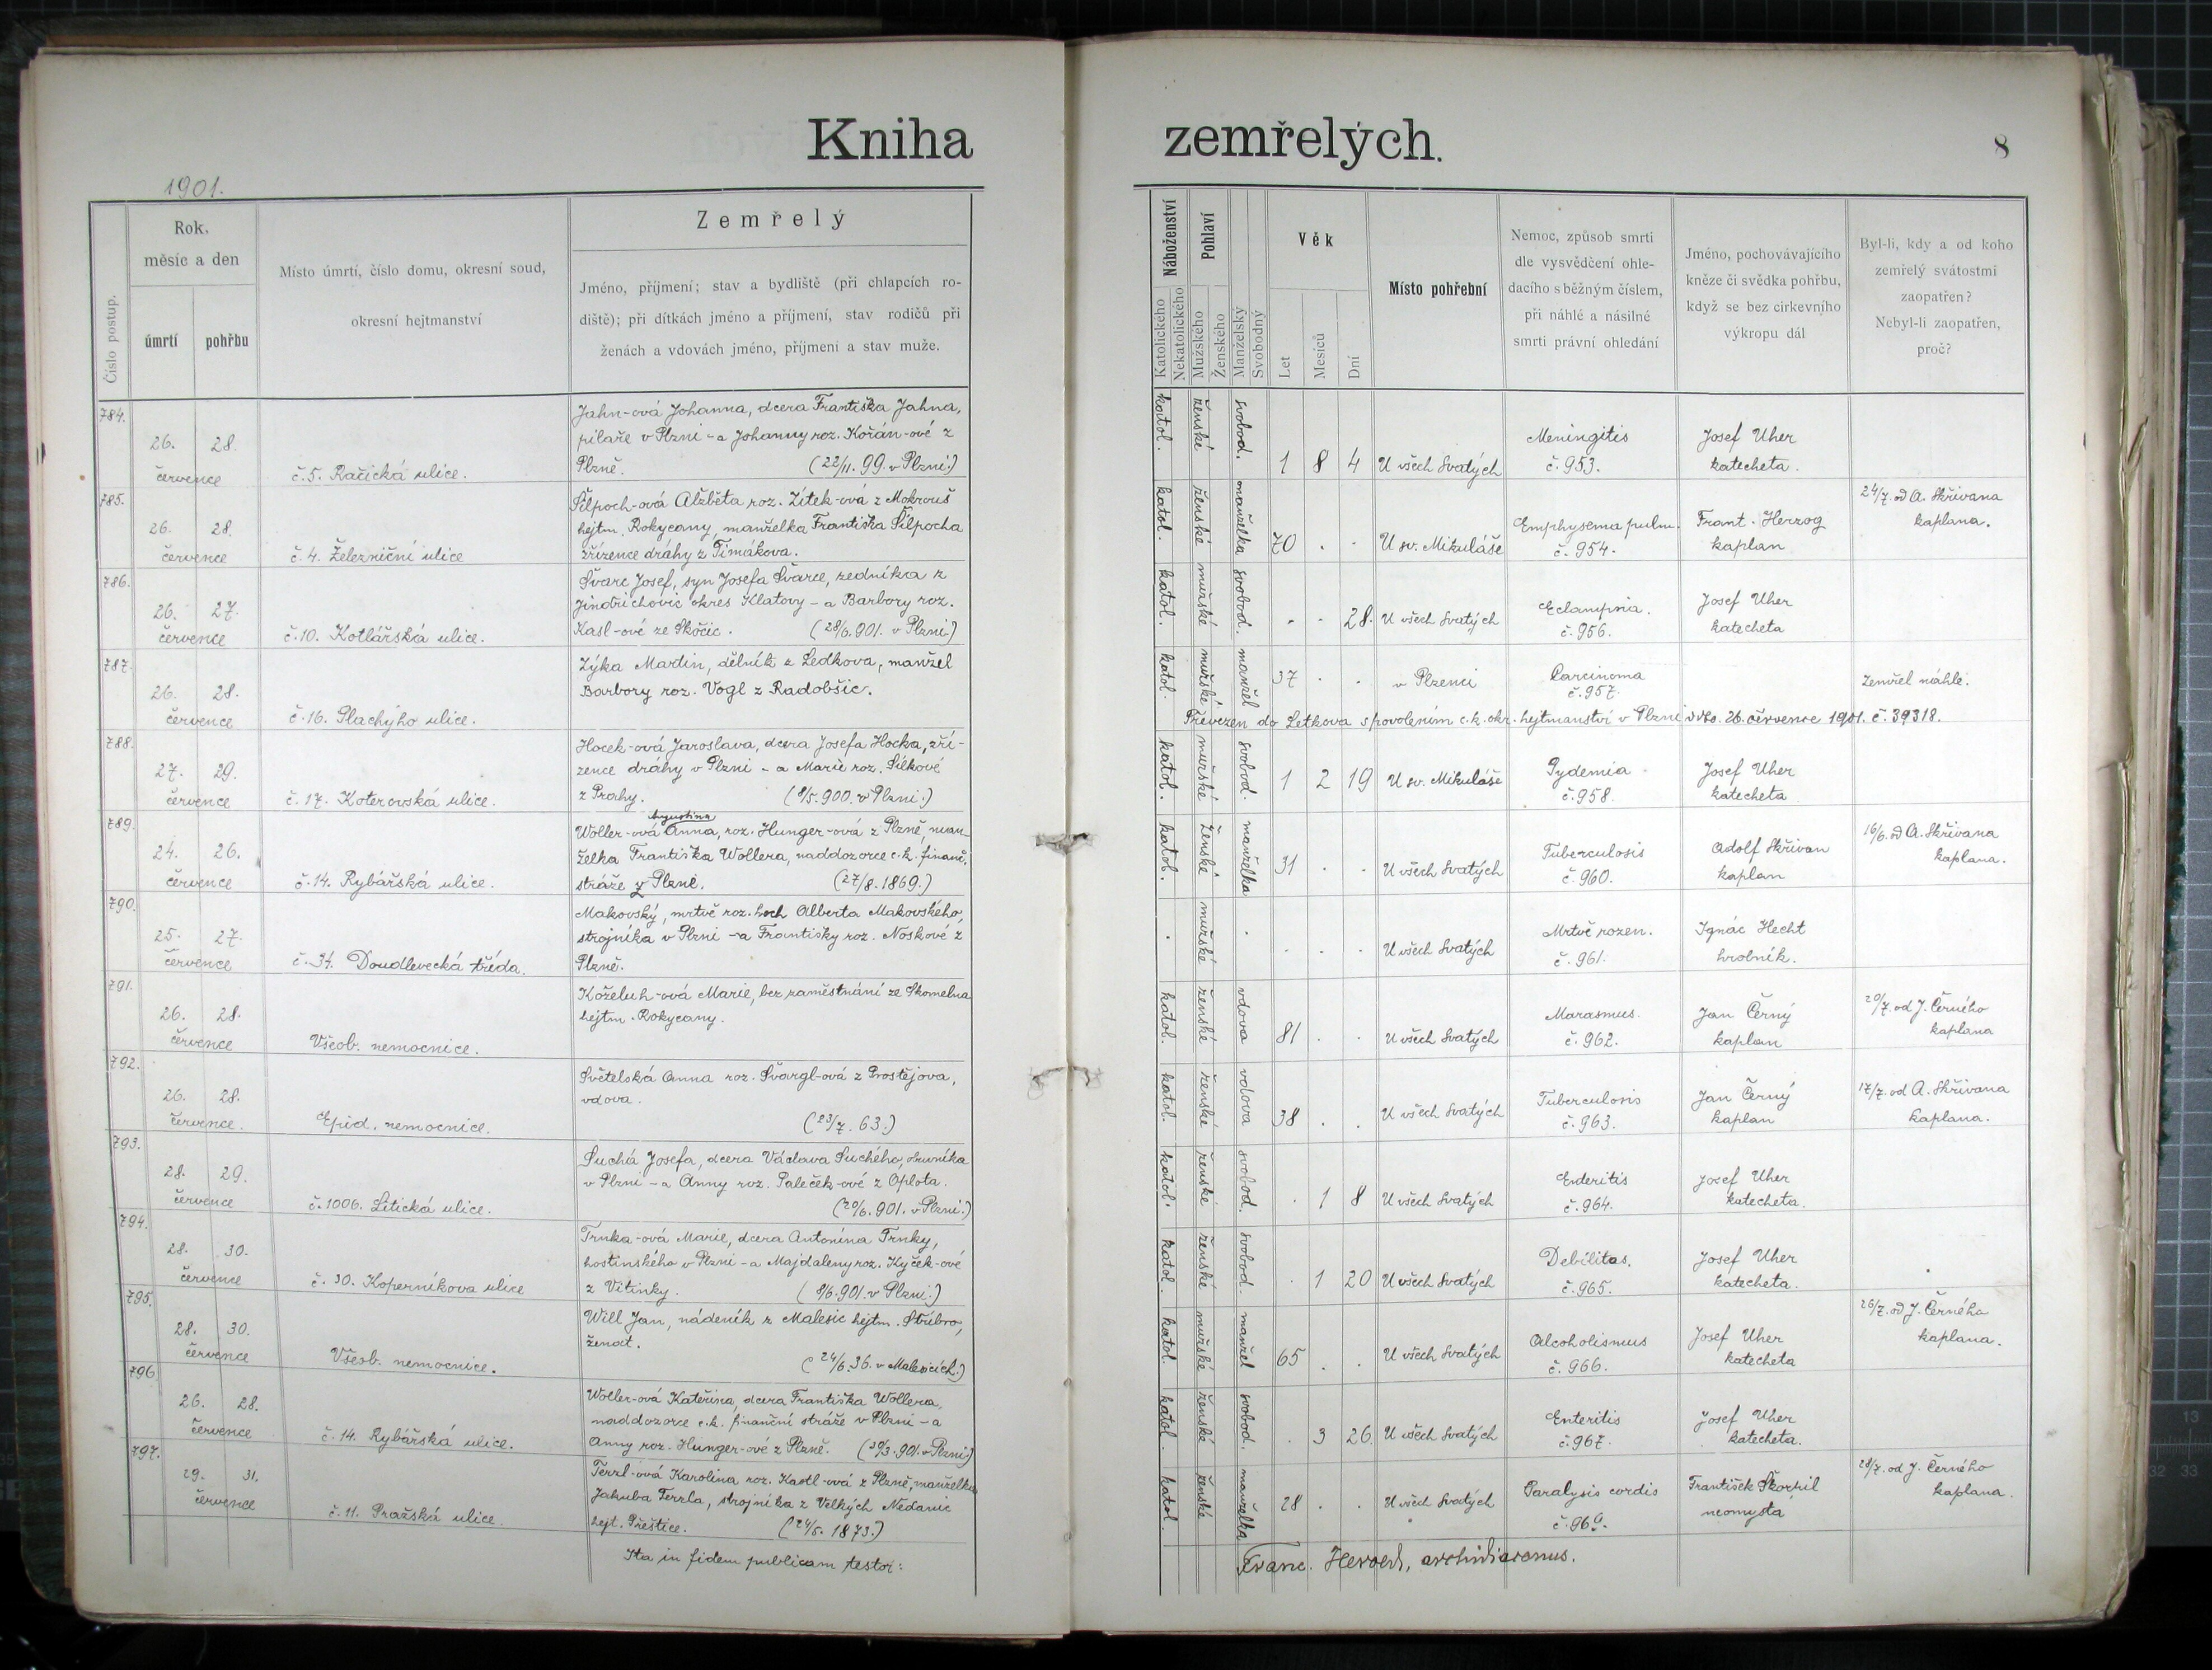 Kniha zemřelých.
8
1901.
Číslo postup.
Rok,
měsíc a den
úmrtí
pohřbu
Místo úmrtí, číslo domu, okresní soud,
okresní hejtmanství
Zemřelý
Jméno, příjmení; stav a bydliště (při chlapcích ro-
diště); při dítkách jméno a příjmení, stav rodičů při
ženách a vdovách jméno, příjmení a stav muže.
Náboženství
Katolického
Nekatolického
Pohlaví
Mužského
Ženského
Manželský
Svobodný
Věk
Let
Mesíců
Dní
Místo pohřební
Nemoc, způsob smrti
dle vysvědčení ohle-
dacího s běžným číslem,
při náhlé a násilné
smrti právní ohledání
Jméno, pochovávajícího
kněze či svědka pohřbu,
když se bez církevního
výkropu dál
Byl-li, kdy a od koho
zemřelý svátostmi
zaopatřen?
Nebyl-li zaopatřen,
proč?
784.
26. 28.
července
č. 5. Račická ulice.
Jahn-ová Johanna, dcera Františka Jahna,
pilaře v Plzni - a Johanny roz. Kořán-ové z
Plzně. (22/11. 99. v Plzni.)
katol. ženské svobod. 1 8 4 U všech Svatých
Meningitis
č. 953.
Josef Uher
katecheta.
785.
26. 28.
července
č. 4. Železniční ulice
Šilpoch-ová Alžběta roz. Zítek-ová z Mokrouš
hejtm. Rokycany, manželka Františka Šilpocha
zřízence dráhy z Timákova.
katol. ženské manželka 70 . . U sv. Mikuláše
Emphysema pulm.
č. 954.
Frant. Herzog
kaplan
24/7. od A. Skřivana
kaplana.
786.
26. 27.
července
č. 10. Kotlářská ulice.
Švarc Josef, syn Josefa Švarce, zedníka z
Jindřichovic okres Klatovy - a Barbory roz.
Kasl-ové ze Skočic. (28/6. 901. v Plzni.)
katol. mužské svobod. . . 28. U všech Svatých
Eclampsia.
č. 956.
Josef Uher
katecheta
787.
26. 28.
července
č. 16. Plachýho ulice.
Zýka Martin, dělník z Ledkova, manžel
Barbory roz. Vogl z Radobšic.
katol mužské manžel 37 . . v Plzenci
Carcinoma
č. 957.
Zemřel náhle.
Převezen do Letkova s povolením c.k. okr. hejtmanství v Plzni ddto. 26. července 1901. č. 39318.
788.
27. 29.
července
č. 17. Koterovská ulice.
Hocek-ová Jaroslava, dcera Josefa Hocka, zří-
zence dráhy v Plzni - a Marie roz. Šílkové
z Prahy. (8/5. 900. v Plzni.)
katol. mužské svobod. 1 2 19 U sv. Mikuláše
Pydemia
č. 958.
Josef Uher
katecheta
789.
24. 26.
července
č. 14. Rybářská ulice.
Augustina
Woller-ová Anna, roz. Hunger-ová z Plzně, man-
želka Františka Wollera, naddozorce c.k. finanč.
stráže z Plzně. (27/8. 1869.)
katol. Ženské manželka 31 . . U všech Svatých
Tuberculosis
č. 960.
Adolf Skřivan
kaplan
16/6. od A. Skřivana
kaplana.
790.
25. 27.
července
č. 34. Doudlevecká třída.
Makovský, mrtvě roz. hoch Alberta Makovského,
strojníka v Plzni - a Františky roz. Noskové z
Plzně.
. mužské . . . . U všech Svatých
Mrtvě rozen.
č. 961.
Ignác Hecht
hrobník.
791.
26. 28.
července
Všeob. nemocnice.
Koželuh-ová Marie, bez zaměstnání ze Skomelna
hejtm. Rokycany.
katol. ženské vdova 81 . . U všech Svatých
Marasmus.
č. 962.
Jan Černý
kaplan
20/7. od J. Černého
kaplana
792.
26. 28.
července.
Epid. nemocnice.
Světelská Anna roz. Švargl-ová z Prostějova,
vdova.
(23/7. 63.)
katol. ženské vdova 38 . . U všech Svatých
Tuberculosis
č. 963.
Jan Černý
kaplan
17/7. od A. Skřivana
kaplana.
793.
28. 29.
července
č. 1006. Litická ulice.
Suchá Josefa, dcera Václava Suchého, obuvníka
v Plzni - a Anny roz. Paleček-ové z Oplota.
(20/6. 901. v Plzni.)
katol. ženské svobod. . 1 8 U všech Svatých
Enteritis
č. 964.
Josef Uher
katecheta.
794.
28. 30.
července
č. 30. Koperníkova ulice
Trnka-ová Marie, dcera Antonína Trnky,
hostinského v Plzni - a Majdaleny roz. Kyček-ové
z Vitinky. (8/6. 901. v Plzni.)
katol. ženské svobod. . 1 20 U všech Svatých
Debilitas.
č. 965.
Josef Uher
katecheta.
795.
28. 30.
července
Všeob. nemocnice.
Will Jan, nádeník z Malesic hejtm. Stříbro,
ženat.
(24/6. 36. v Malesicích.)
katol. mužské manžel 65 . . U všech Svatých
Alcoholismus
č. 966.
Josef Uher
katecheta
26/7. od J. Černého
kaplana.
796.
26. 28.
července
č. 14. Rybářská ulice.
Woller-ová Kateřina, dcera Františka Wollera,
naddozorce c.k. finanční stráže v Plzni - a
Anny roz. Hunger-ové z Plzně. (30/3. 901. v Plzni)
katol. ženské svobod. . 3 26. U všech Svatých
Enteritis
č. 967.
Josef Uher
katecheta.
797.
29. 31.
července
č. 11. Pražská ulice.
Terzl-ová Karolina roz. Kastl-ová z Plzně, manželka
Jakuba Terzla, strojníka z Velkých Nedanic
hejt. Přeštice. (24/5. 1873.)
katol. ženské manželka 28 . . U všech Svatých
Paralysis cordis
č. 969.
František Škorpil
neomysta
28/7. od J. Černého
kaplana.
Ita in fidem publicam testor:
Franc. Herold, archidiaconus.